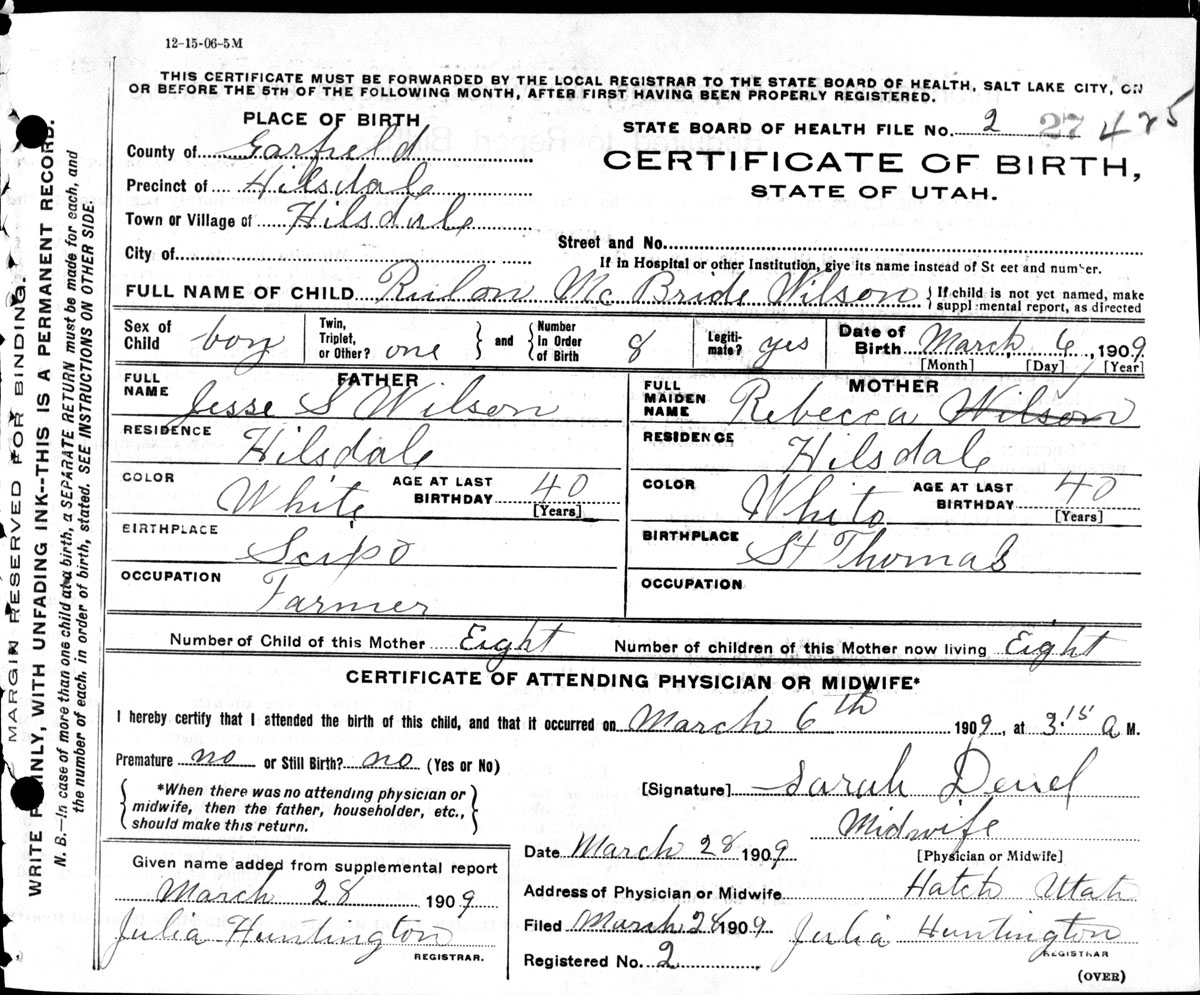 12-15-06-5M
THIS CERTIFICATE MUST BE FORWARDED BY THE LOCAL REGISTRAR TO THE STATE BOARD OF HEALTH, SALT LAKE CITY, ON
OR BEFORE THE 5TH OF THE FOLLOWING MONTH, AFTER FIRST HAVING BEEN PROPERLY REGISTERED.
PLACE OF BIRTH
County of Garfield
Precinct of Hilsdale
Town or Village of Hilsdale
City of
STATE BOARD OF HEALTH FILE No. 2 27 425
CERTIFICATE OF BIRTH,
STATE OF UTAH.
Street and No.
If in Hospital or other Institution, give its name instead of St eet and number.
FULL NAME OF CHILD Rulon Mc Bride Wilson { If child is not yet named, make
suppl mental report, as directed
Sex of Child boy Twin, Triplet, or Other? one } and { Number In Order of Birth 8 Legiti-mate? yes Date of Birth March 6, 1909
[Month] [Day] [Year]
FATHER
FULL NAME Jesse S Wilson
RESIDENCE Hilsdale
COLOR White AGE AT LAST BIRTHDAY 40
[Years]
BIRTHPLACE Scipo
OCCUPATION Farmer
MOTHER
FULL MAIDEN NAME Rebecca Wilson
RESIDENCE Hilsdale
COLOR White AGE AT LAST BIRTHDAY 40
[Years]
BIRTHPLACE St Thomas
OCCUPATION
Number of Child of this Mother Eight Number of children of this Mother now living Eight
CERTIFICATE OF ATTENDING PHYSICIAN OR MIDWIFE*
I hereby certify that I attended the birth of this child, and that it occurred on March 6th 1909, at 3.15 a M.
Premature no or Still Birth? no (Yes or No)
{ *When there was no attending physician or
midwife, then the father, householder, etc.,
should make this return. }
[Signature] Sarah
Midwife
[Physician or Midwife]
Given name added from supplemental report
March 28 1909
Julia Huntington
REGISTRAR.
Date March 28 1909
Address of Physician or Midwife Hatch Utah
Filed March 28 1909 Julia Huntington
REGISTRAR
Registered No. 2
(OVER)
MARGIN RESERVED FOR BINDING.
WRITE P INLY, WITH UNFADING INK--THIS IS A PERMANENT RECORD.
N. B.—In case of more than one child at a birth, a SEPARATE RETURN must be made for each, and
the number of each, in order of birth, stated. SEE INSTRUCTIONS ON OTHER SIDE.